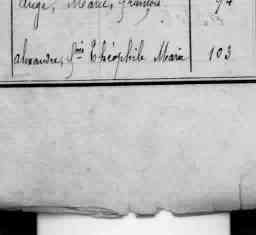 Ange, Marie, François 94
alexandre, frs Théophile Marie 103